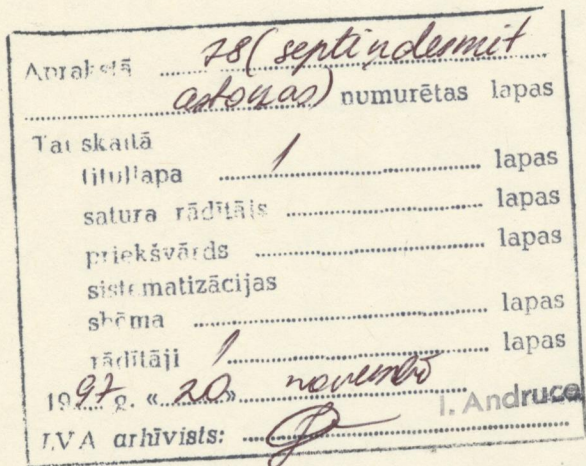 Aprakstā 78 (septiņdesmit
astoņas) numurētas lapas
Tai skaitā
titullapa 1 lapas
satura rādītājs lapas
priekšvārds lapas
sistematizācijas
shēma lapas
rādītāji 1 lapas
1997 g. « 20 » novembrī
I. Andruce
LVA arhīvists: